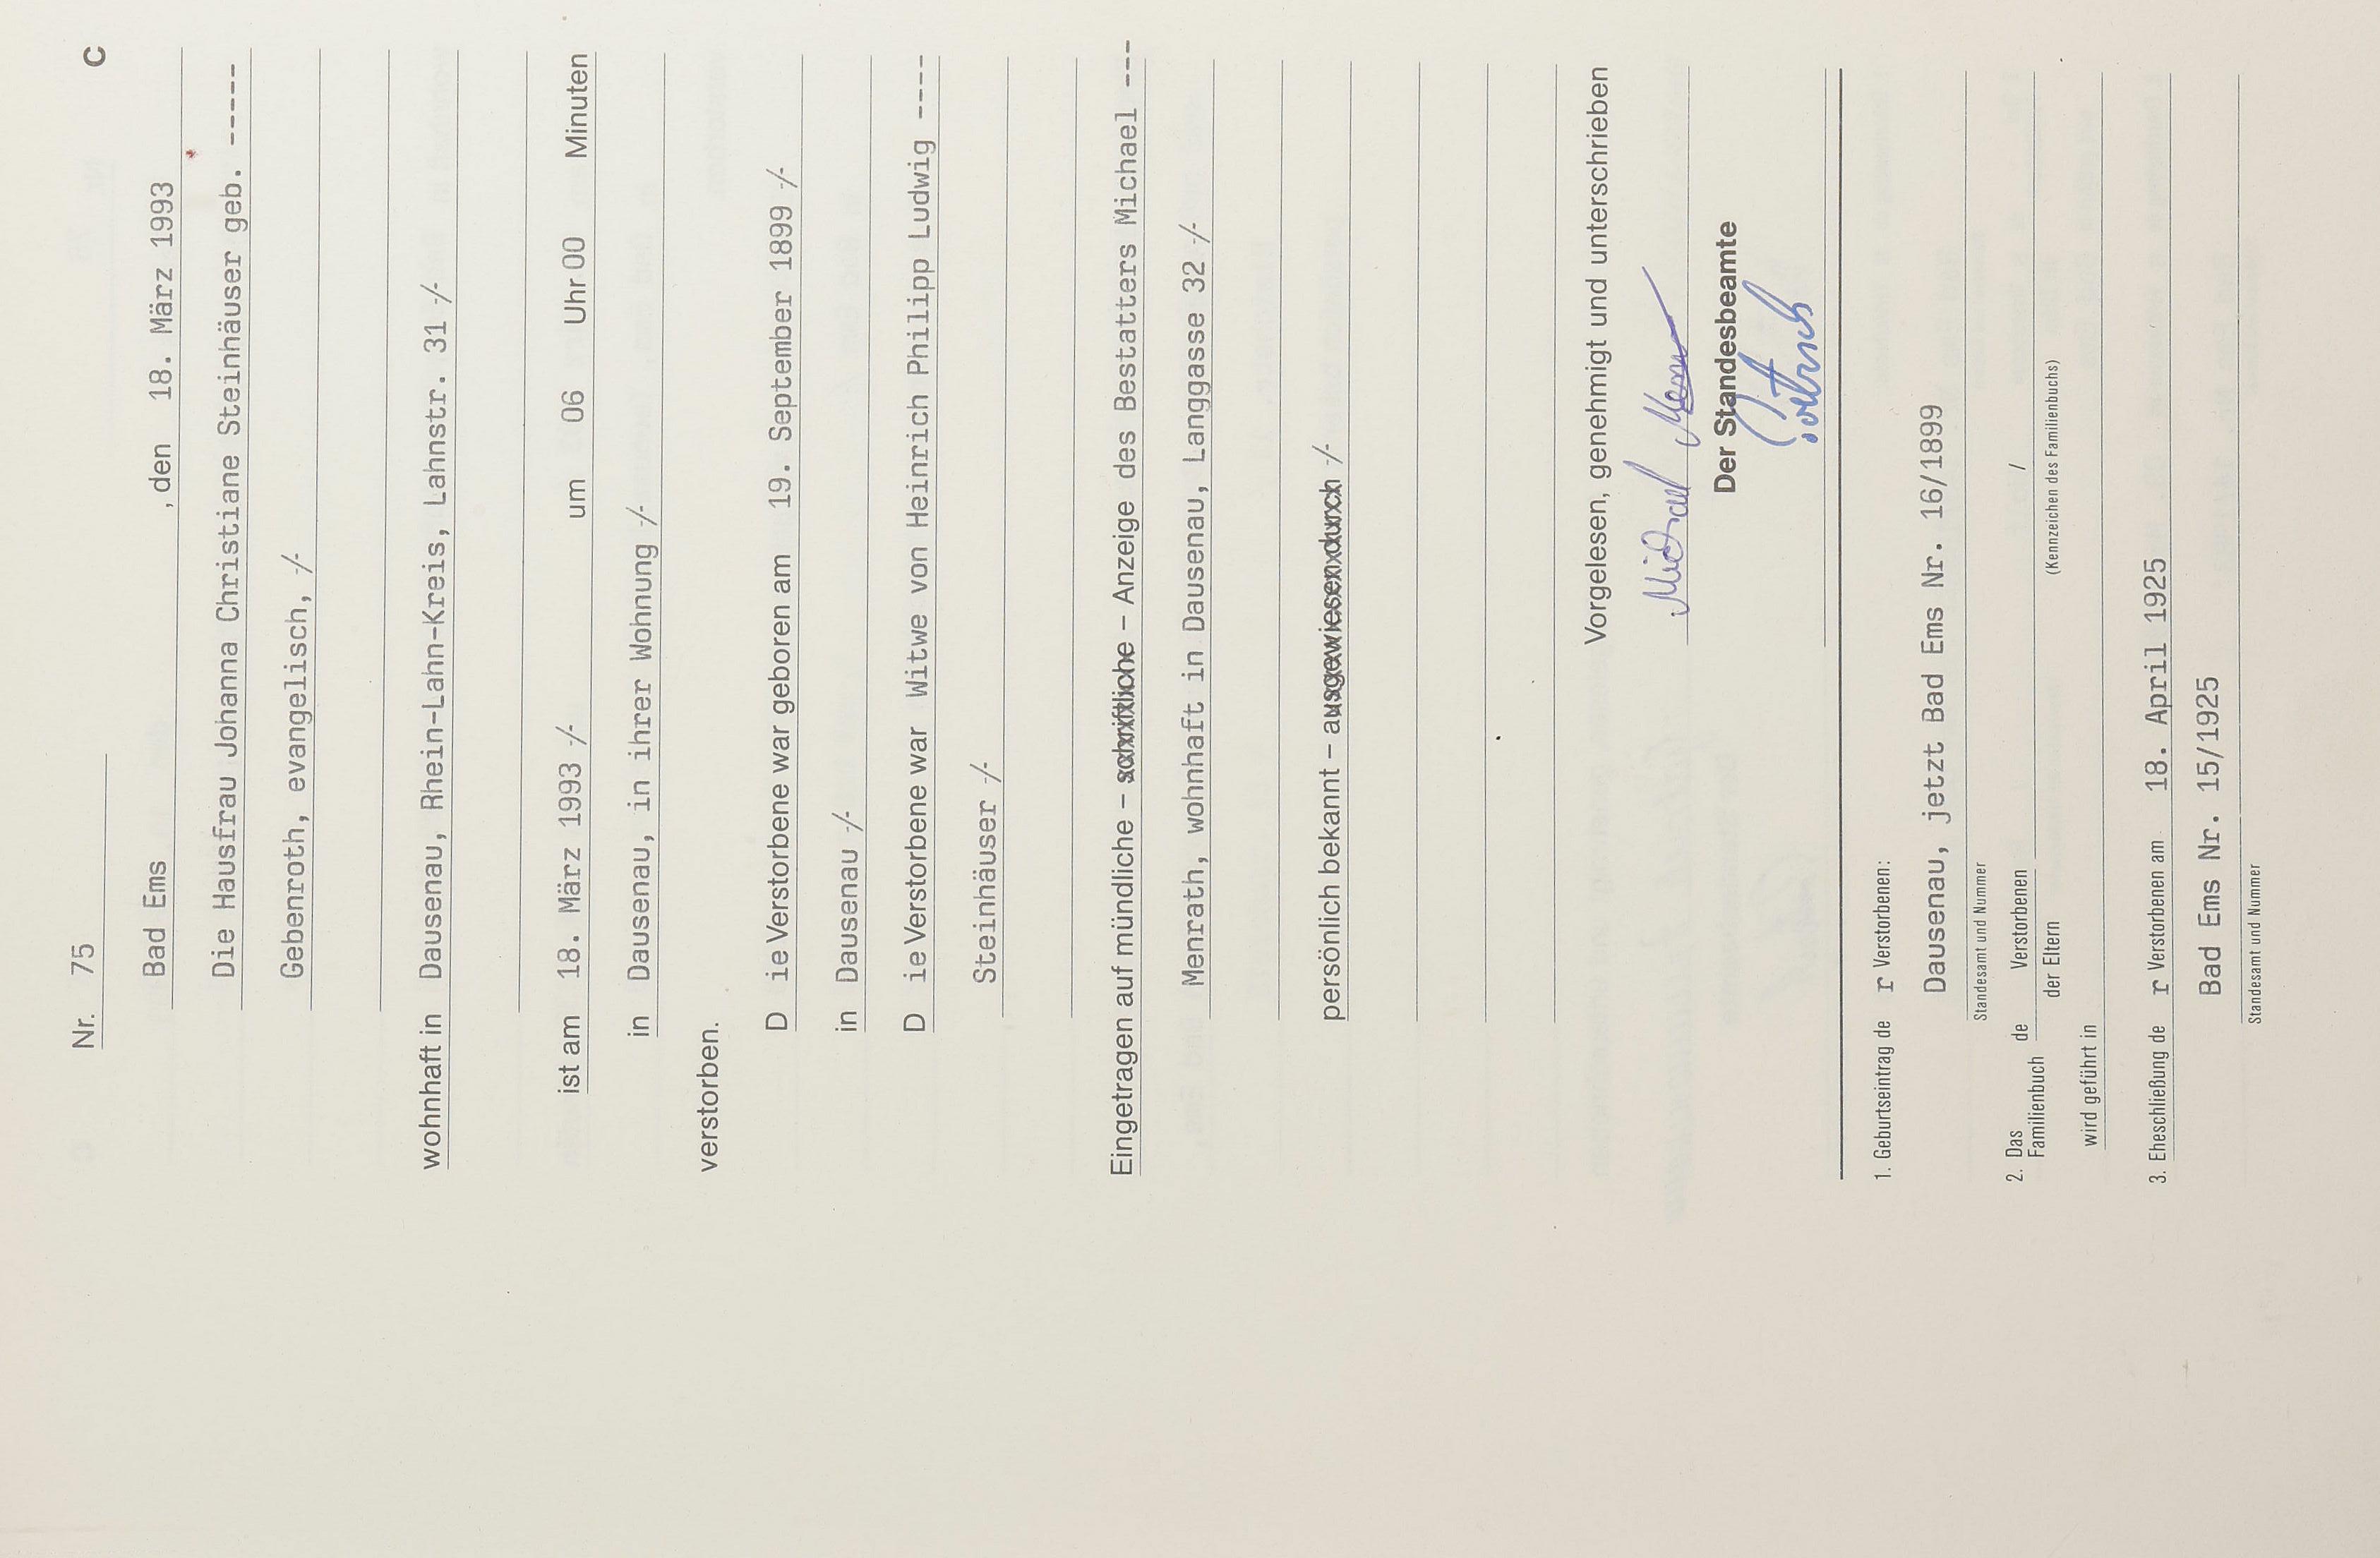 C
Nr. 75
Bad Ems, den 18. März 1993
Die Hausfrau Johanna Christiane Steinhäuser geb. ------
Gebenroth, evangelisch, -/-
wohnhaft in Dausenau, Rhein-Lahn-Kreis, Lahnstr. 31 -/-
ist am 18. März 1993 -/- um 06 Uhr 00 Minuten
in Dausenau, in ihrer Wohnung -/-
verstorben.
D ie Verstorbene war geboren am 19. September 1899 -/-
in Dausenau -/-
D ie Verstorbene war Witwe von Heinrich Philipp Ludwig -----
Steinhäuser -/-
Eingetragen auf mündliche – schriftliche – Anzeige des Bestatters Michael ---
Menrath, wohnhaft in Dausenau, Langgasse 32 -/-
persönlich bekannt – ausgewiesen durch -/-
Vorgelesen, genehmigt und unterschrieben
Michael
Der Standesbeamte
1. Geburtseintrag de r Verstorbenen:
Dausenau, jetzt Bad Ems Nr. 16/1899
Standesamt und Nummer
2. Das Familienbuch de Verstorbenen /
der Eltern (Kennzeichen des Familienbuchs)
wird geführt in
3. Eheschließung de r Verstorbenen am 18. April 1925
Bad Ems Nr. 15/1925
Standesamt und Nummer